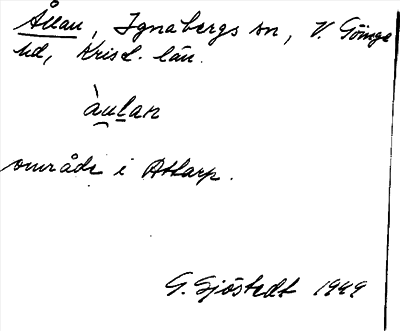 Ållan, Ignabergs sn, V. Göinge
hd, Krist. län.
àulan
område i Attarp.
G. Sjöstedt 1949